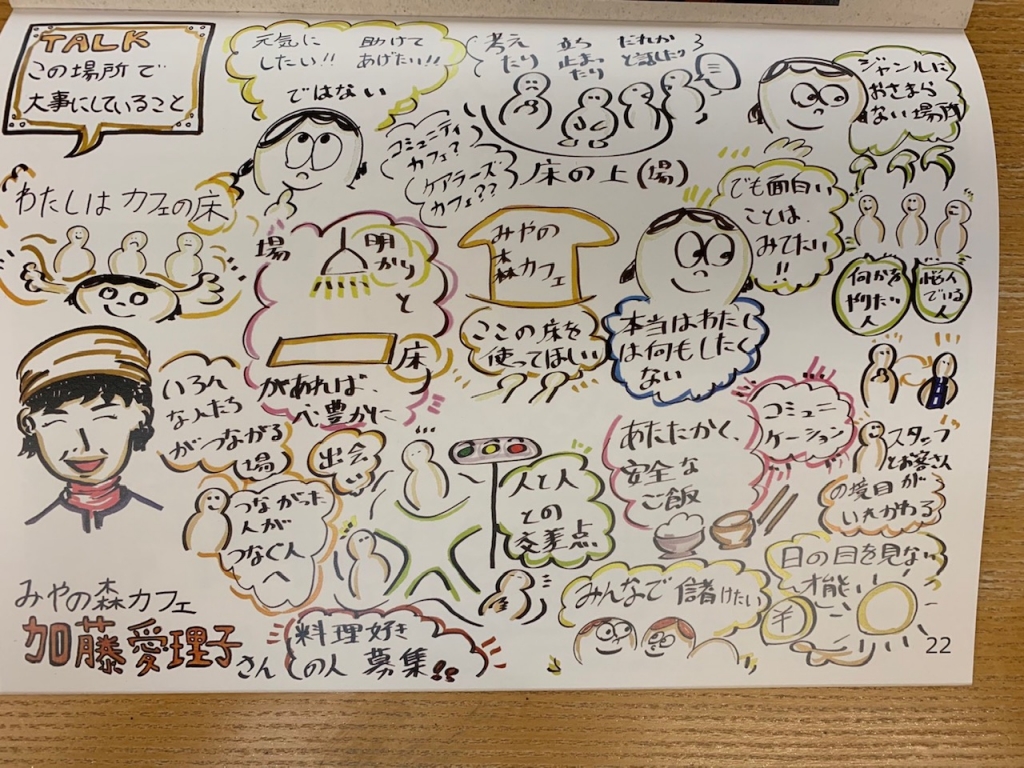 TALK
この場所で
大事にしていること
元気に
したい!!
助けて
あげたい!!
ではない
考え
たり
立ち
止まっ
たり
だれか
と話したり
ジャンルに
おさまら
ない場所
コミュニティ
カフェ?
ケアラーズ
カフェ??
床の上(場)
わたしは カフェの床
場
明
かり
と
床
があれば、
心豊かに
みやの
森カフェ
ここの床を
使ってほしい
でも面白い
ことは、
みてたい
!!
本当はわたし
は何もしたく
ない
何かを
やりたい
人
悩ん
でいる
人
いろん
な人たち
がつながる
場
出会い
つながった
人が
つなぐ人
へ
人と人
との
交差点
あたたかく、
安全な
ご飯
コミュニ
ケーション
スタッフ
とお客さん
の境目が
いれかわる
みやの森カフェ
加藤愛理子さん
料理好き
の人 募集!!
みんなで儲けたい
¥
日の目を見ない
才能
22